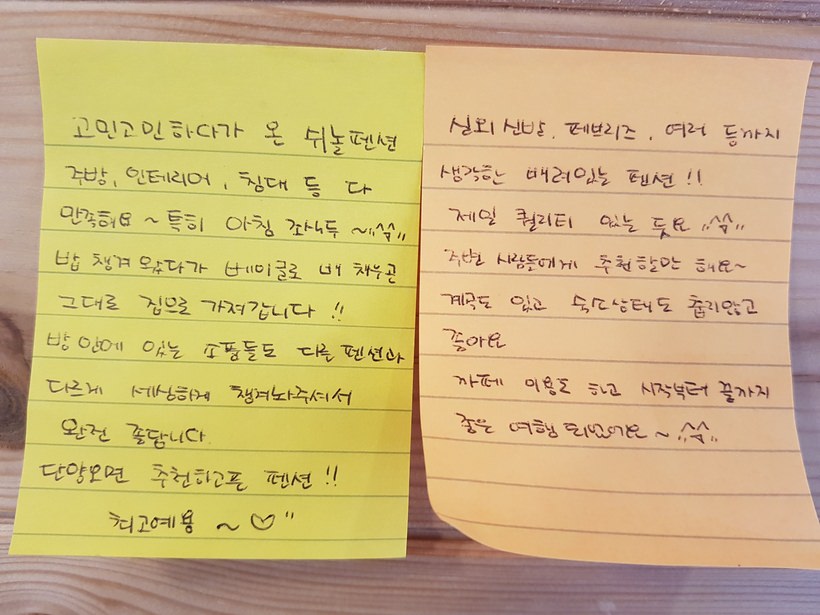 고민고민하다가 온 쉬놀펜션
주방, 인테리어, 침대 등 다
만족해요~ 특히 아침 조식두 ~,,^^,,
밥 챙겨 왔다가 베이글로 배 채우곤
그대로 집으로 가져갑니다 !!
방안에 있는 소품들도 다른 펜션과
다르게 세심하게 챙겨놔주셔서
완전 좋답니다.
단양오면 추천하고픈 펜션 !!
최고예용 ~ ♡"
실외 신발, 페브리즈, 여러 등까지
생각하는 배려있는 펜션 !!
제일 퀄리티 있는 듯요 ,,^^,,
주변 사람들에게 추천할만 해요~
계곡도 있고 숙소상태도 춥지않고
좋아요
까페 이용도 하고 시작부터 끝까지
좋은 여행 되었어요 ~ ,,^^,,